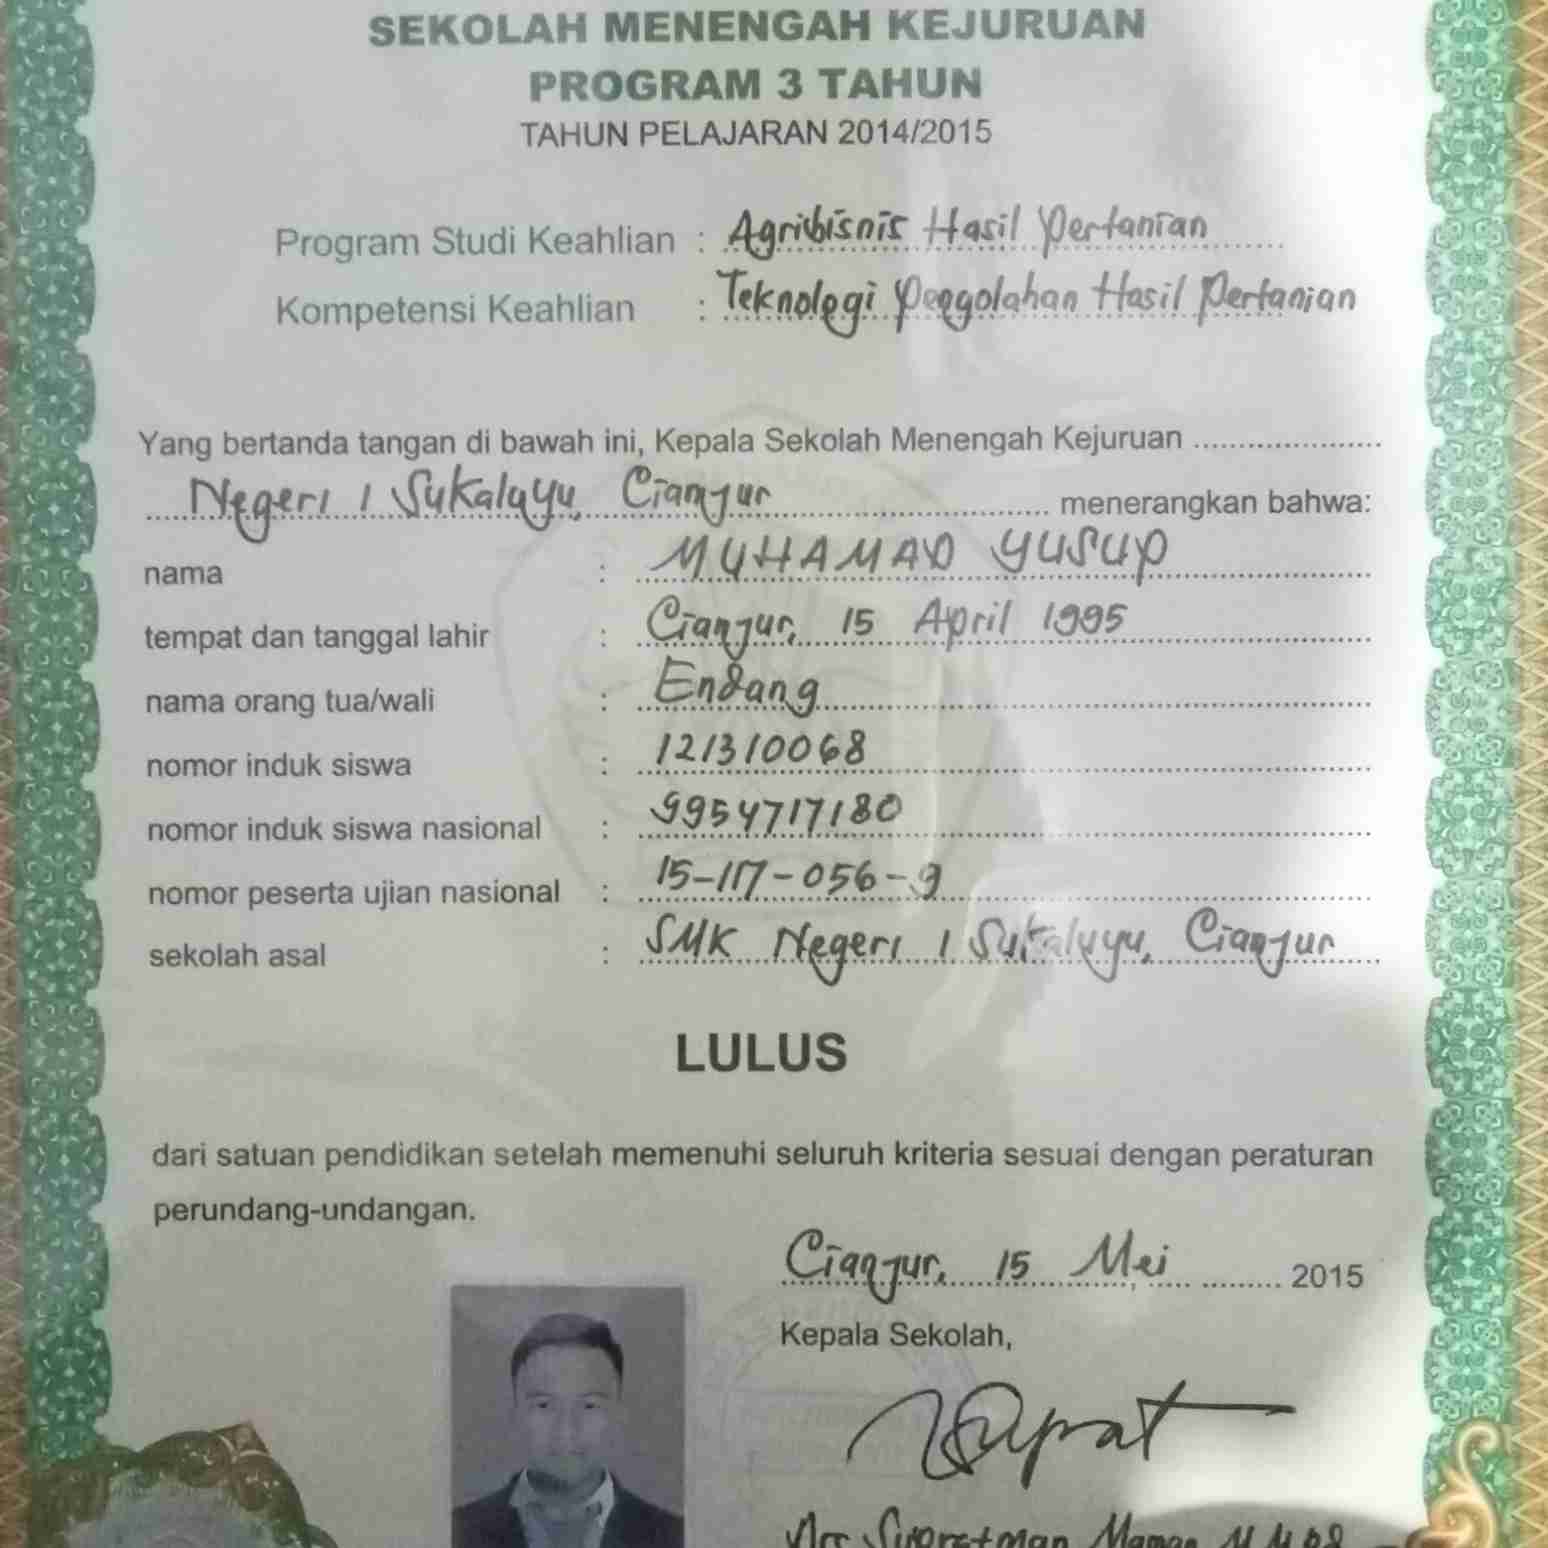 SEKOLAH MENENGAH KEJURUAN
PROGRAM 3 TAHUN
TAHUN PELAJARAN 2014/2015
Program Studi Keahlian : Agribisnis Hasil Pertanian
Kompetensi Keahlian : Teknologi Pengolahan Hasil Pertanian
Yang bertanda tangan di bawah ini, Kepala Sekolah Menengah Kejuruan
Negeri 1 Sukaluyu, Cianjur menerangkan bahwa:
nama : MUHAMAD YUSUP
tempat dan tanggal lahir : Cianjur, 15 April 1995
nama orang tua/wali : Endang
nomor induk siswa : 121310068
nomor induk siswa nasional : 9954717180
nomor peserta ujian nasional : 15-117-056-9
sekolah asal : SMK Negeri 1 Sukaluyu, Cianjur
LULUS
dari satuan pendidikan setelah memenuhi seluruh kriteria sesuai dengan peraturan
perundang-undangan.
Cianjur, 15 Mei 2015
Kepala Sekolah,